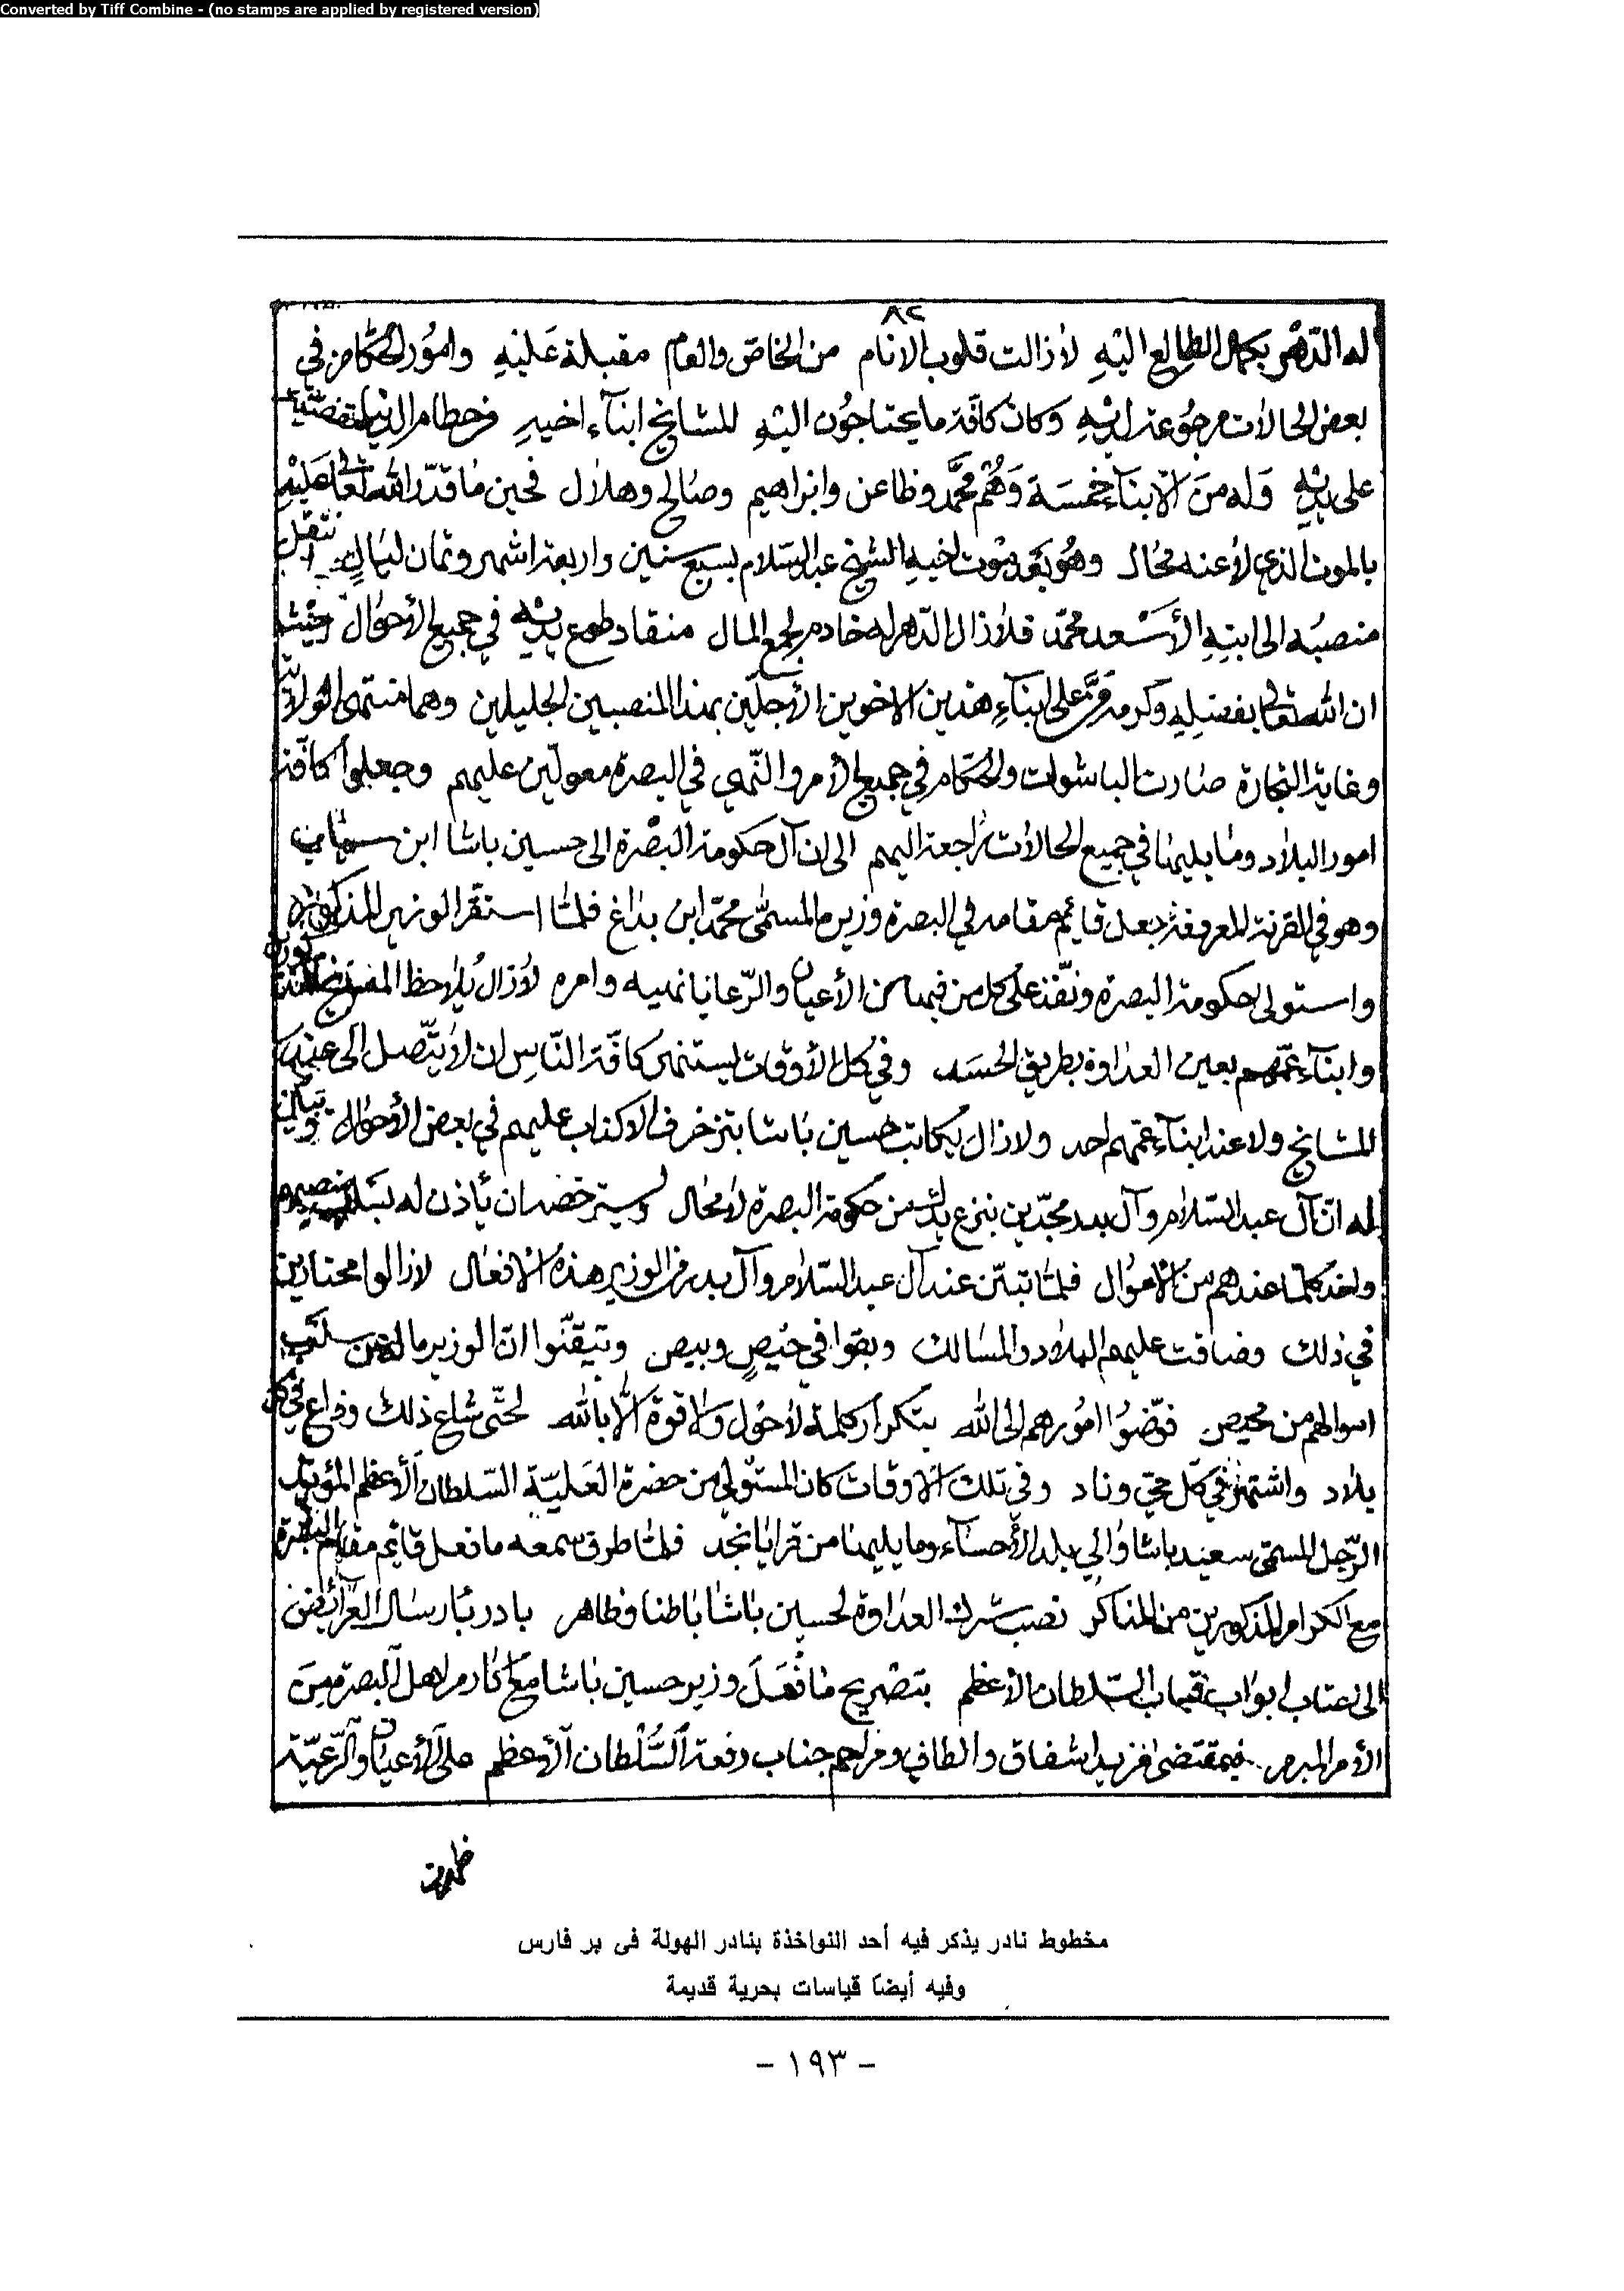 Converted by Tiff Combine - (no stamps are applied by registered version)
٨٢
له الدّهر بكمال الطالع اليه لازالت قلوب الانام من الخاص والعام مقبلة عليه وامور الحكام في
بعض الحالات مرجوعة لديه وكان كافة ما يحتاجون اليه للمشايخ ابناء اخيه من حطام الدنيا
على يديه وله من الابناء خمسة وهم محمّد وظاعن وابراهيم وصالح وهلال فحين ما قدّر الله تعالى عليه
بالموت الذي لا عنه محال وهو بعد موت اخيه الشيخ عبد السلام بسبع سنين واربعة اشهر وثمان ليال انتقل
منصبه الى ابنه الأسعد محمّد فلازال الدّهر له خادم لجمع المال منقاد طوع يديه في جميع الأحوال وحيث
ان الله تعالى بفضله وكرمه على ابناء هذين الاخوين الأجلّين بهذا المنصبين الجليلين وهما منتهى الولاية
وغاية التجارة صارت الباشوات والحكام في جميع الأمر والنّهي في البصرة معولين عليهم وجعلوا كافة
امور البلاد وما يليها في جميع الحالات راجعة اليهم الى ان آل حكومة البصرة الى حسين باشا ابن
وهو في القرنة المعروفة جعل قايم مقامه في البصرة وزيره المسمّى محمّد ابن بداغ فلمّا استقر الوزير المذكور
واستولى بحكومة البصرة ونفّذ على كل من فيها من الأعيان والرّعايا نهيه وامره لازال يلاحظ المشايخ
وابناء عمّهم بعين العداوة بطريق الحسد وفي كل الأوقات يستنهى كافة النّاس ان لا يتّصل الى عند
المشايخ ولا عند ابناء عمّهم احد ولازال يكاتب حسين باشا بتزخرف الاكذاب عليهم في بعض الأحوال ويبيّن
له ان آل عبد السّلام وآل بدر مجدّين بنزع يدك من حكومة البصرة لا محال ويسترخصه ان يأذن له بسلب
واخذ كلما عندهم من الأموال فلمّا تبيّن عند آل عبد السّلام وآل بدر من الوزير هذه الافعال لازالوا محتارين
في ذلك وضاقت عليهم البلاد والمسالك وبقوا في حيص وبيص وتيقّنوا انّ الوزير ماله عن سلب
اموالهم من محيص فوّضوا امورهم الى الله بتكرار كلمة لا حول ولا قوة الّا بالله حتّى شاع ذلك وذاع في كل
بلاد واشتهر في كل حيّ وناد وفي تلك الاوقات كان المستولي من حضرة العليّة السّلطان الأعظم المؤيّد
الرّجل المسمّى سعيد باشا والي بلد الأحساء وما يليها من قرايا نجد فلمّا طرق سمعه ما فعل قايم مقام البصرة
مع الكرام المذكورين من المناكر نصب شرك العداوة لحسين باشا باطنا وظاهر بادر بارسال العرائض
الى اعتاب ابواب قباب السّلطان الأعظم بتصريح ما فعل وزير حسين باشا مع اكارم اهل البصرة من
الأمر المبرم فبمقتضى مزيد اشفاق والطاف ومراحم جناب رفعة السّلطان الأعظم على الأعيان والرّعيّة
مخطوط نادر يذكر فيه أحد النواخذة بنادر الهولة فى بر فارس
وفيه أيضاً قياسات بحرية قديمة
- ١٩٣ -